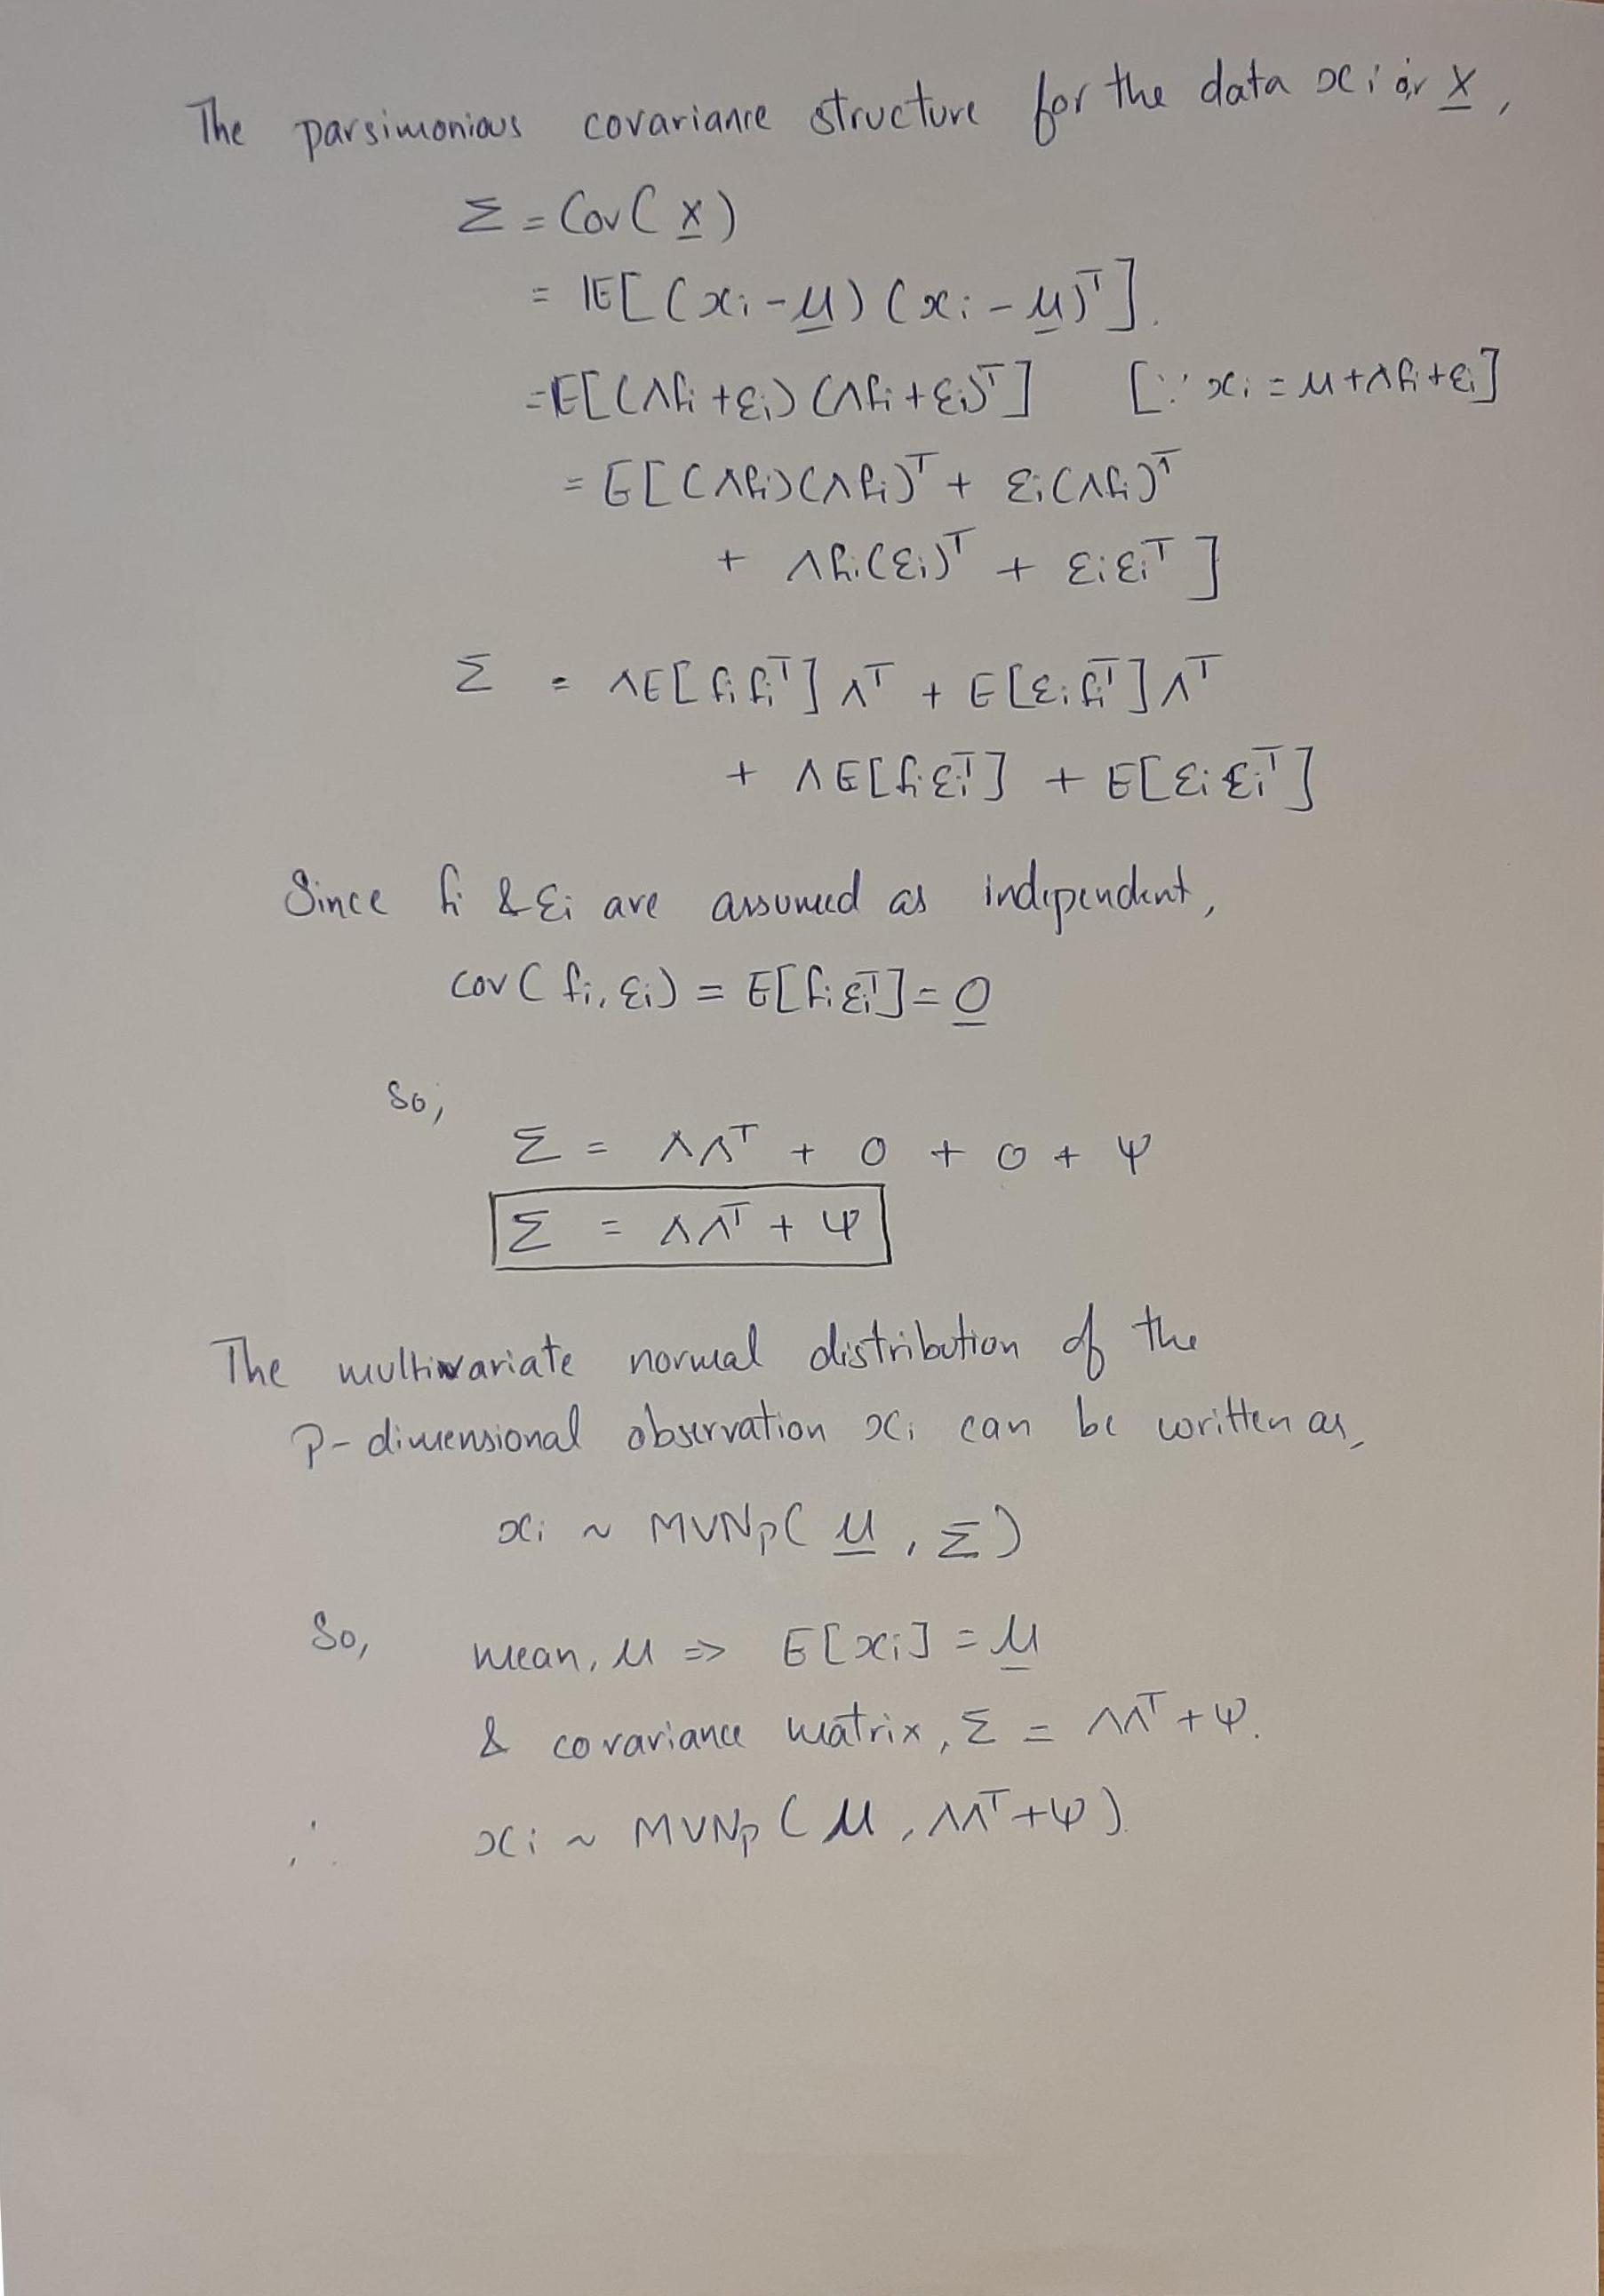 The parsimonious covariance structure for the data xi or X,
Σ = Cov(X)
= IE[(xi-μ)(xi-μ)ᵀ].
=E[(Λfi+εi)(Λfi+εi)ᵀ] [∵ xi = μ+Λfi+εi]
= E[(Λfi)(Λfi)ᵀ + εi(Λfi)ᵀ
+ Λfi(εi)ᵀ + εiεiᵀ]
Σ = ΛE[fifiᵀ]Λᵀ + E[εifiᵀ]Λᵀ
+ ΛE[fiεiᵀ] + E[εiεiᵀ]
Since fi & εi are assumed as independent,
cov(fi, εi) = E[fiεiᵀ] = 0
So,
Σ = ΛΛᵀ + 0 + 0 + Ψ
Σ = ΛΛᵀ + Ψ
The multivariate normal distribution of the
P-dimensional observation xi can be written as,
xi ~ MVNp(μ, Σ)
So, mean, μ => E[xi] = μ
& covariance matrix, Σ = ΛΛᵀ + Ψ.
∴ xi ~ MVNp(μ, ΛΛᵀ+Ψ).